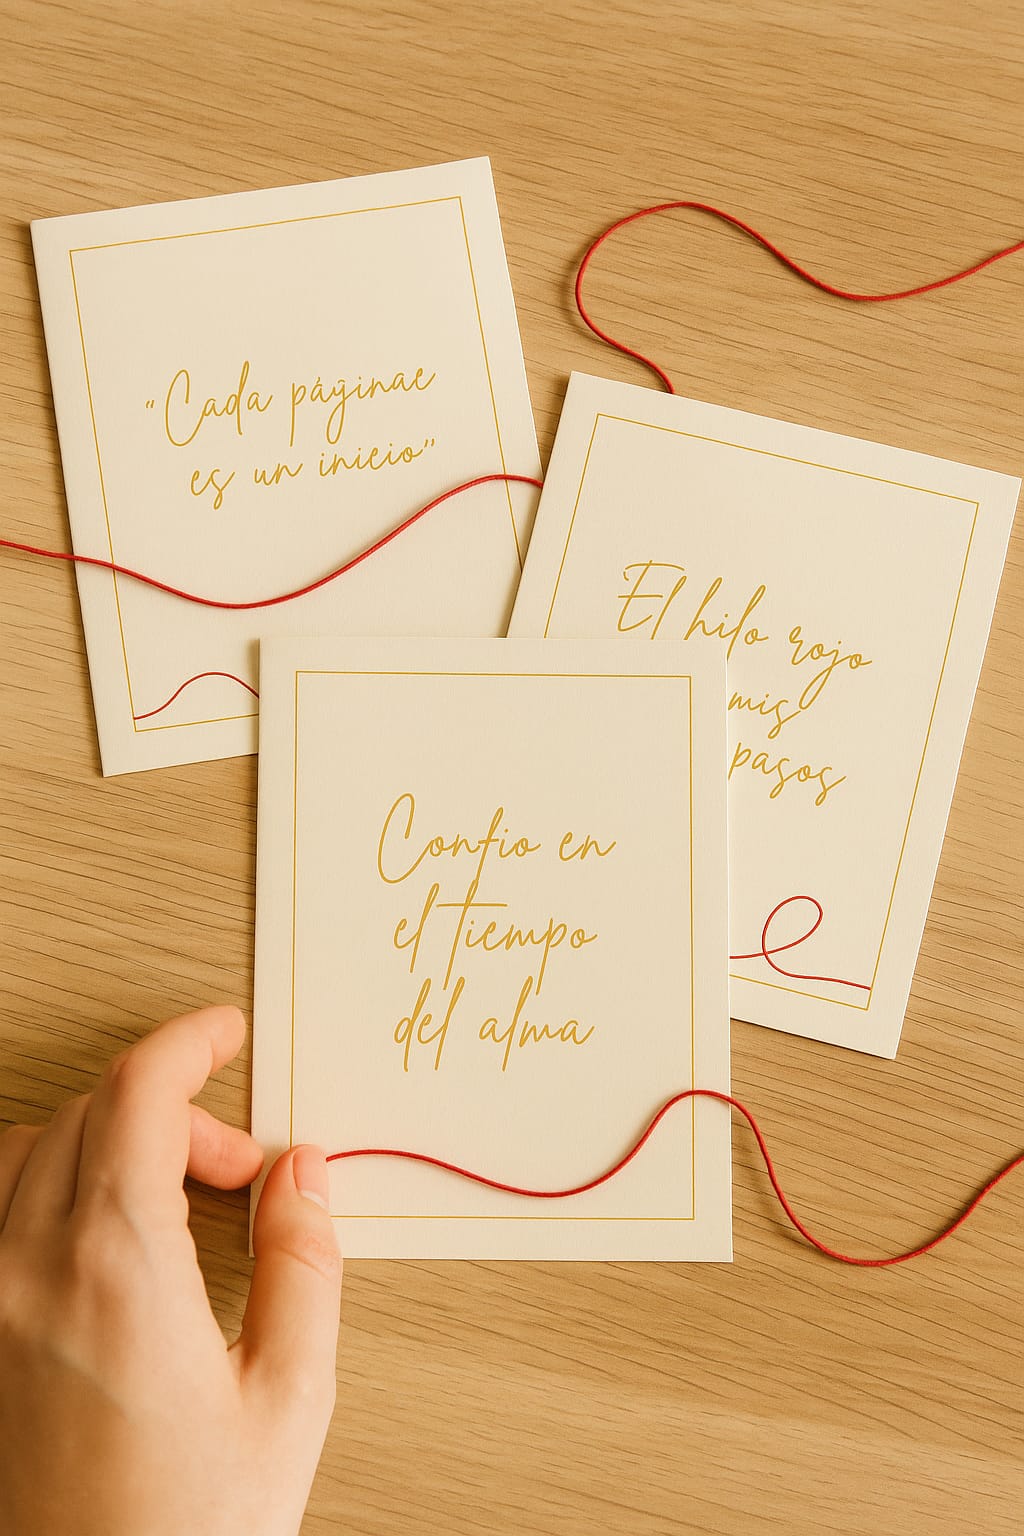 "Cada páginae
es un inicio"
El hilo rojo
mis
pasos
Confio en
el tiempo
del alma